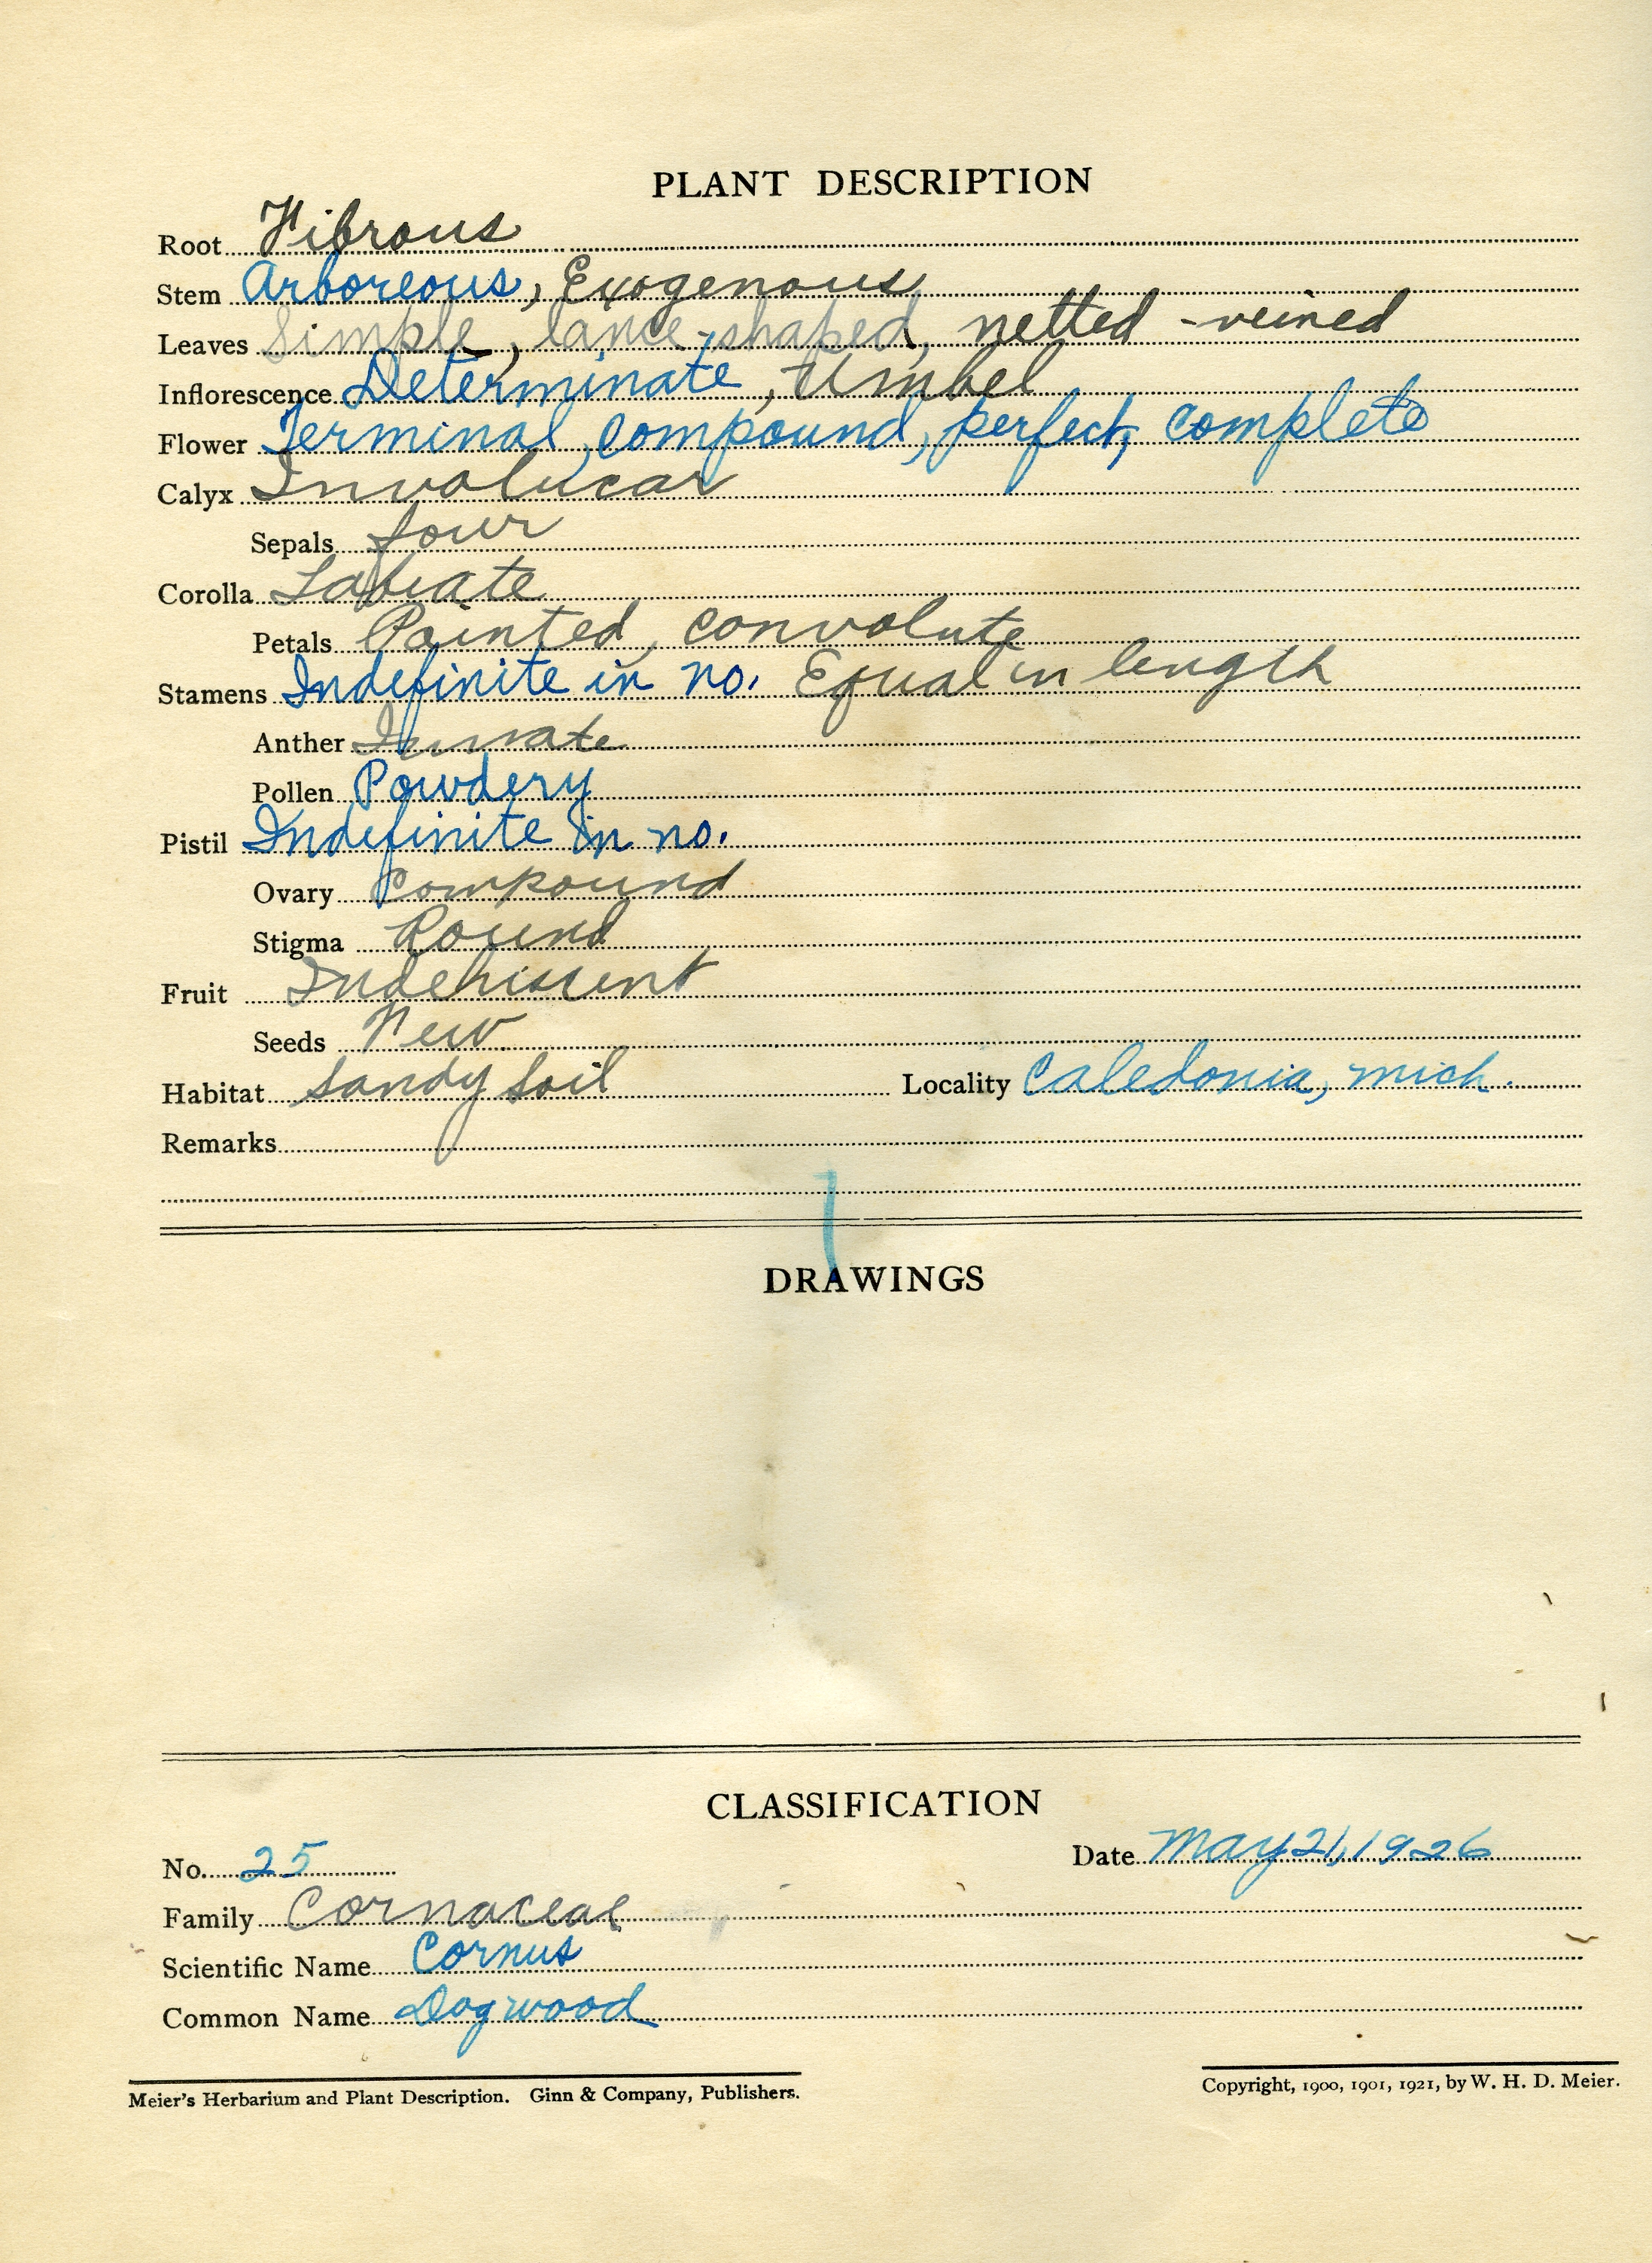 PLANT DESCRIPTION
Root Fibrous
Stem Arboreous, Exogenous
Leaves Simple, lance-shaped, netted-veined
Inflorescence Determinate, Umbel
Flower Terminal, compound, perfect, complete
Calyx Involucar
Sepals four
Corolla Labiate
Petals Pointed, convolute
Stamens Indefinite in no. Equal in length
Anther
Pollen Powdery
Pistil Indefinite in no.
Ovary Compound
Stigma Round
Fruit Indehiscent
Seeds Few
Habitat sandy soil Locality Caledonia, Mich.
Remarks
DRAWINGS
CLASSIFICATION
No. 25 Date May 21, 1926
Family Cornaceae
Scientific Name Cornus
Common Name Dogwood
Meier's Herbarium and Plant Description. Ginn & Company, Publishers. Copyright, 1900, 1901, 1921, by W. H. D. Meier.